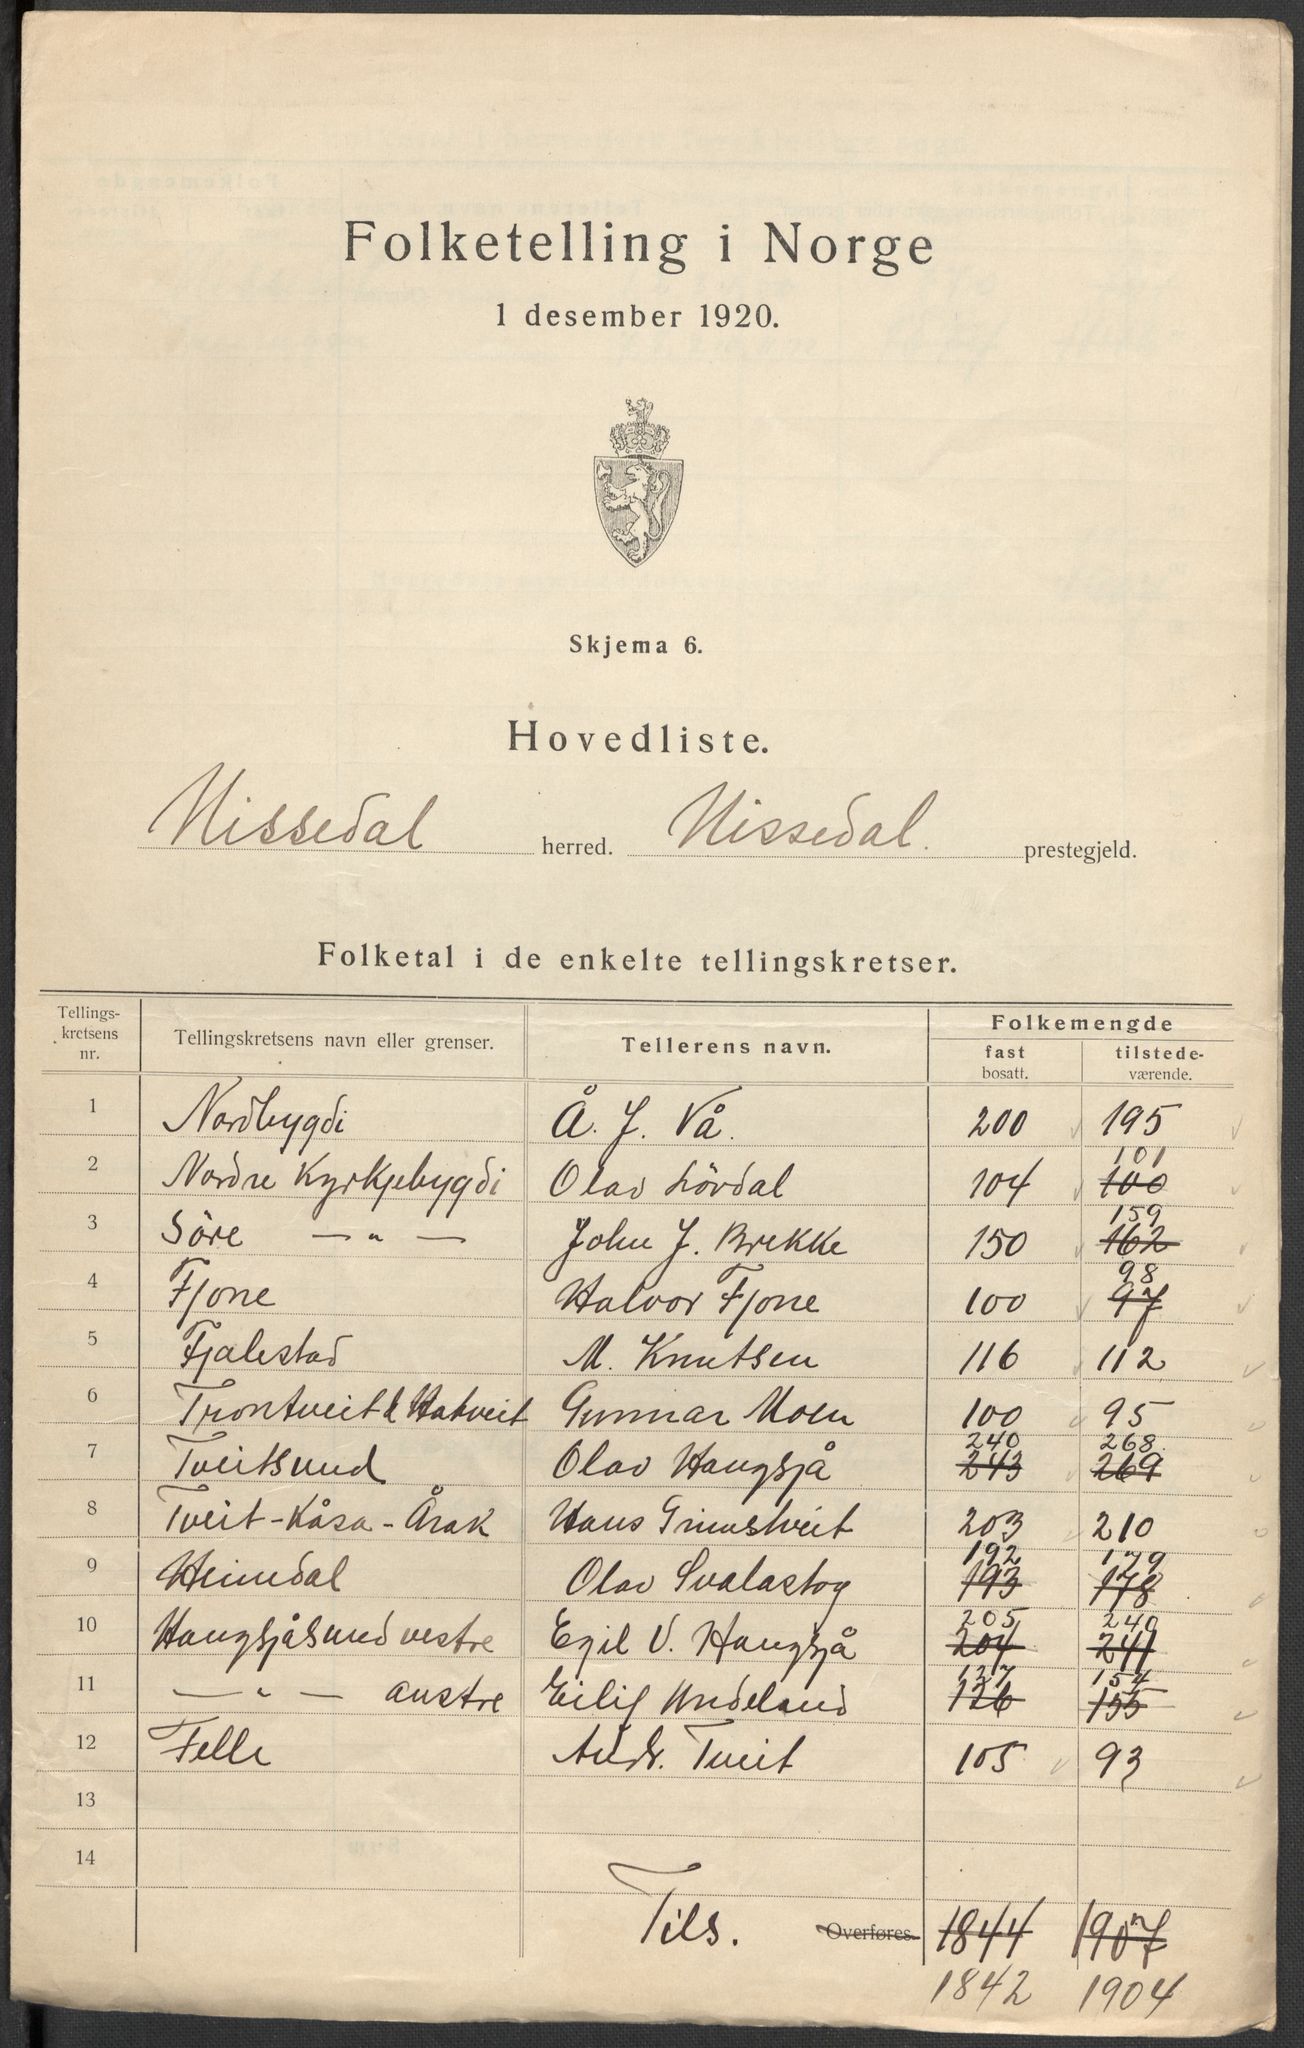 Folketelling i Norge
1 desember 1920.
Skjema 6.
Hovedliste.
Nissedal herred. Nissedal. prestegjeld.
Folketal i de enkelte tellingskretser.
Tellings-kretsens nr. Tellingskretsens navn eller grenser. Tellerens navn. Folkemengde
fast bosatt. tilstede-værende.
1 Nordbygdi Å. J. Vå. 200 195
2 Nordre Kyrkjebygdi Olav Lövdal 104 101 100
3 Söre — " — John J. Brekke 150 159 162
4 Fjone Halvor Fjone 100 98 97
5 Fjalestad M. Knutsen 116 112
6 Trontveit & Hatveit Gunnar Moen 100 95
7 Tveitsund Olav Haugsjå 240 243 268 269
8 Tveit-Kåsa-Årak Hans Grimstveit 203 210
9 Heimdal Olav Svalastog 192 193 179 178
10 Haugsjåsund vestre Egil V. Haugsjå 205 204 240 241
11 — " — austre Eilif Undeland 127 126 154 155
12 Felle Andr. Tveit 105 93
13
14
Tils. Overføres. 1844 1907
1842 1904